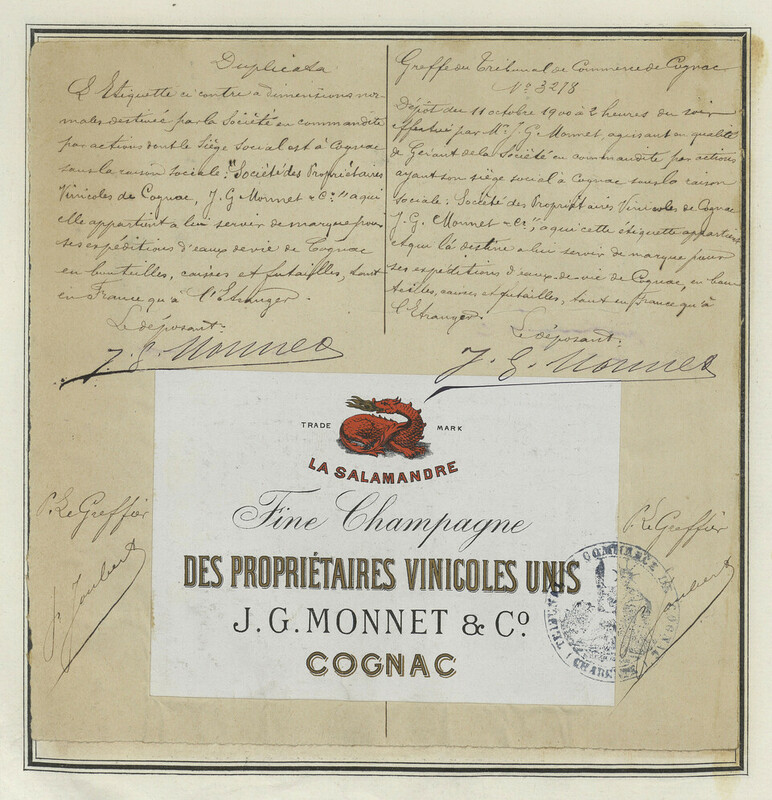 Duplicata
L'Etiquette ci contre à dimensions nor-
males destinée par la Société en commandite
par actions dont le Siège Social est à Cognac
sous la raison sociale: "Société des Propriétaires
Vinicoles de Cognac, J. G Monnet & Cie" à qui
elle appartient à lui servir de marque pour
ses expéditions d'eaux de vie de Cognac
en bouteilles, caisses et futailles, tant
en France qu'à l'Etranger.
Le déposant:
J. G. Monnet
Greffe du Tribunal de Commerce de Cognac
No 3278
Dépôt du 11 octobre 1900 à 2 heures du soir
effectué par Mr J. G. Monnet, agissant en qualité
de Gérant de la Société en commandite par actions
ayant son siège social à Cognac sous la raison
sociale: Société des Propriétaires Vinicoles de Cognac
J. G. Monnet & Cie", à qui cette étiquette appartient
et qui la destine à lui servir de marque pour
ses expéditions d'eaux-de-vie de Cognac, en bou-
teilles, caisses et futailles, tant en France qu'à
l'Etranger.
Le déposant:
J. G. Monnet
TRADE MARK
LA SALAMANDRE
Fine Champagne
DES PROPRIÉTAIRES VINICOLES UNIS
J. G. MONNET & Co.
COGNAC
P. Le Greffier
P. Joubert
P. Le Greffier
Joubert